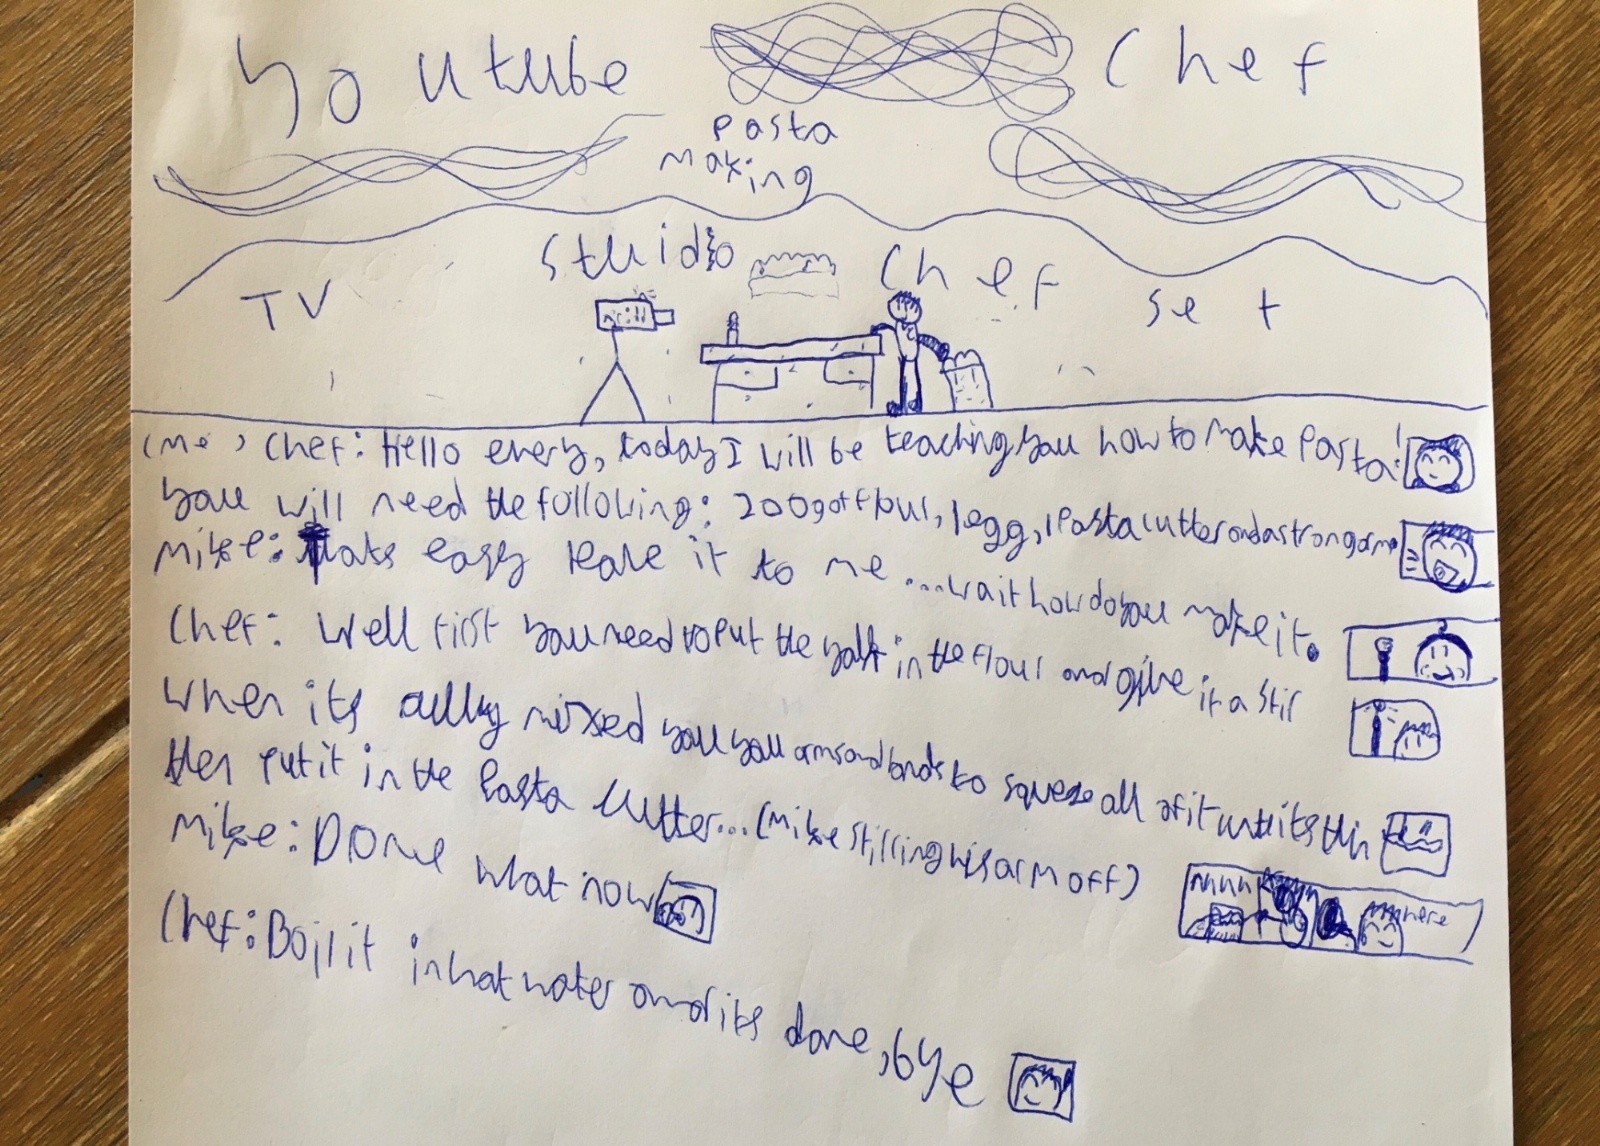 Youtube Chef
Pasta
Making
Stuidio Chef
TV set
(me) Chef: Hello enery, today I will be teaching you how to make Pasta!
you will need the following: 200g of flour, 1 egg, 1 Pasta cutter and a strong arm
Mike: thats easy leave it to me ...wait how do you make it.
Chef: Well first you need to put the yolk in the flour and give it a stir
When its mixed you arms and hands to squeze all of it until its thin
then put it in the Pasta Cutter... (Mike stirring his arm off)
Mike: Done what now
here
Chef: Boil it in hot water and its done, bye